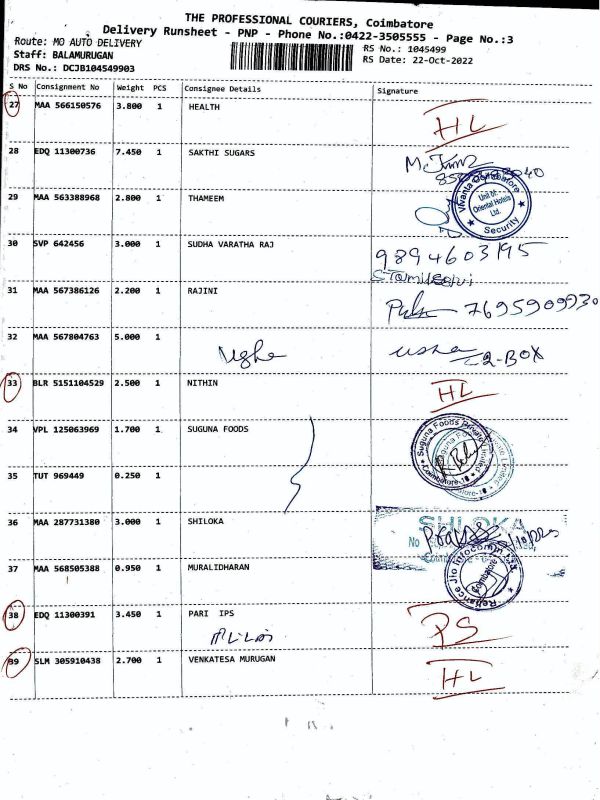 THE PROFESSIONAL COURIERS, Coimbatore
Delivery Runsheet - PNP - Phone No.:0422-3505555 - Page No.:3
Route: MO AUTO DELIVERY
Staff: BALAMURUGAN
DRS No.: DCJB104549903
RS No.: 1045499
RS Date: 22-Oct-2022
S No Consignment No Weight PCS Consignee Details Signature
27 MAA 566150576 3.800 1 HEALTH HL
28 EDQ 11300736 7.450 1 SAKTHI SUGARS
29 MAA 563388968 2.800 1 THAMEEM
Vivanta Coimbatore
Unit of:
Oriental Hotels
Ltd.
Security
30 SVP 642456 3.000 1 SUDHA VARATHA RAJ 9894603195
31 MAA 567386126 2.200 1 RAJINI 7695909930
32 MAA 567804763 5.000 1 usha 2-BOX
33 BLR 5151104529 2.500 1 NITHIN HL
34 VPL 125063969 1.700 1 SUGUNA FOODS
Suguna Foods Private Limited
Coimbatore-18
35 TUT 969449 0.250 1
36 MAA 287731380 3.000 1 SHILOKA
SHILOKA
No
37 MAA 568505388 0.950 1 MURALIDHARAN
Reliance Jio Infocomm Ltd.
Coimbatore
38 EDQ 11300391 3.450 1 PARI IPS PS
39 SLM 305910438 2.700 1 VENKATESA MURUGAN HL